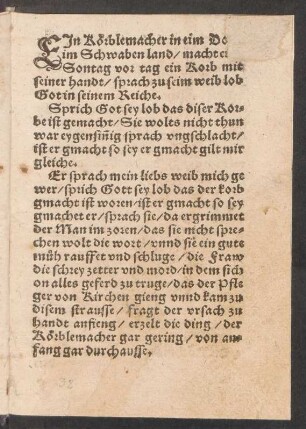 EIn Kőrblemacher in eim Do
im Schwaben land / macht ei
Sontag vor tag ein Korb mit
seiner handt / sprach zu seim weib lob
Got in seinem Reiche.
Sprich Got sey lob das diser Kor-
be ist gemacht / Sie woles nicht thun
war eygensiñig sprach vngschlacht /
ist er gmacht so sey er gmacht gilt mir
gleiche.
Er sprach mein liebs weib mich ge
wer / sprich Gott sey lob das der korb
gmacht ist woren / ist er gmacht so sey
gmachet er / sprach sie / da ergrimmet
der Man im zoren / das sie nicht spre-
chen wolt die wort / vnnd sie ein gute
müh rauffet vnd schluge / die Fraw
die schrey zetter vnd mord / in dem sich
on alles geferd zu truge / das der Pfle
ger von Kirchen gieng vnnd kam zu
disem strausse / fragt der vrsach zu
handt anfieng / erzelt die ding / der
Kőrblemacher gar gering / von an-
fang gar durchausse.